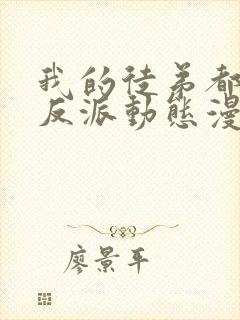 我的徒弟都
反派動態漫
廖景平